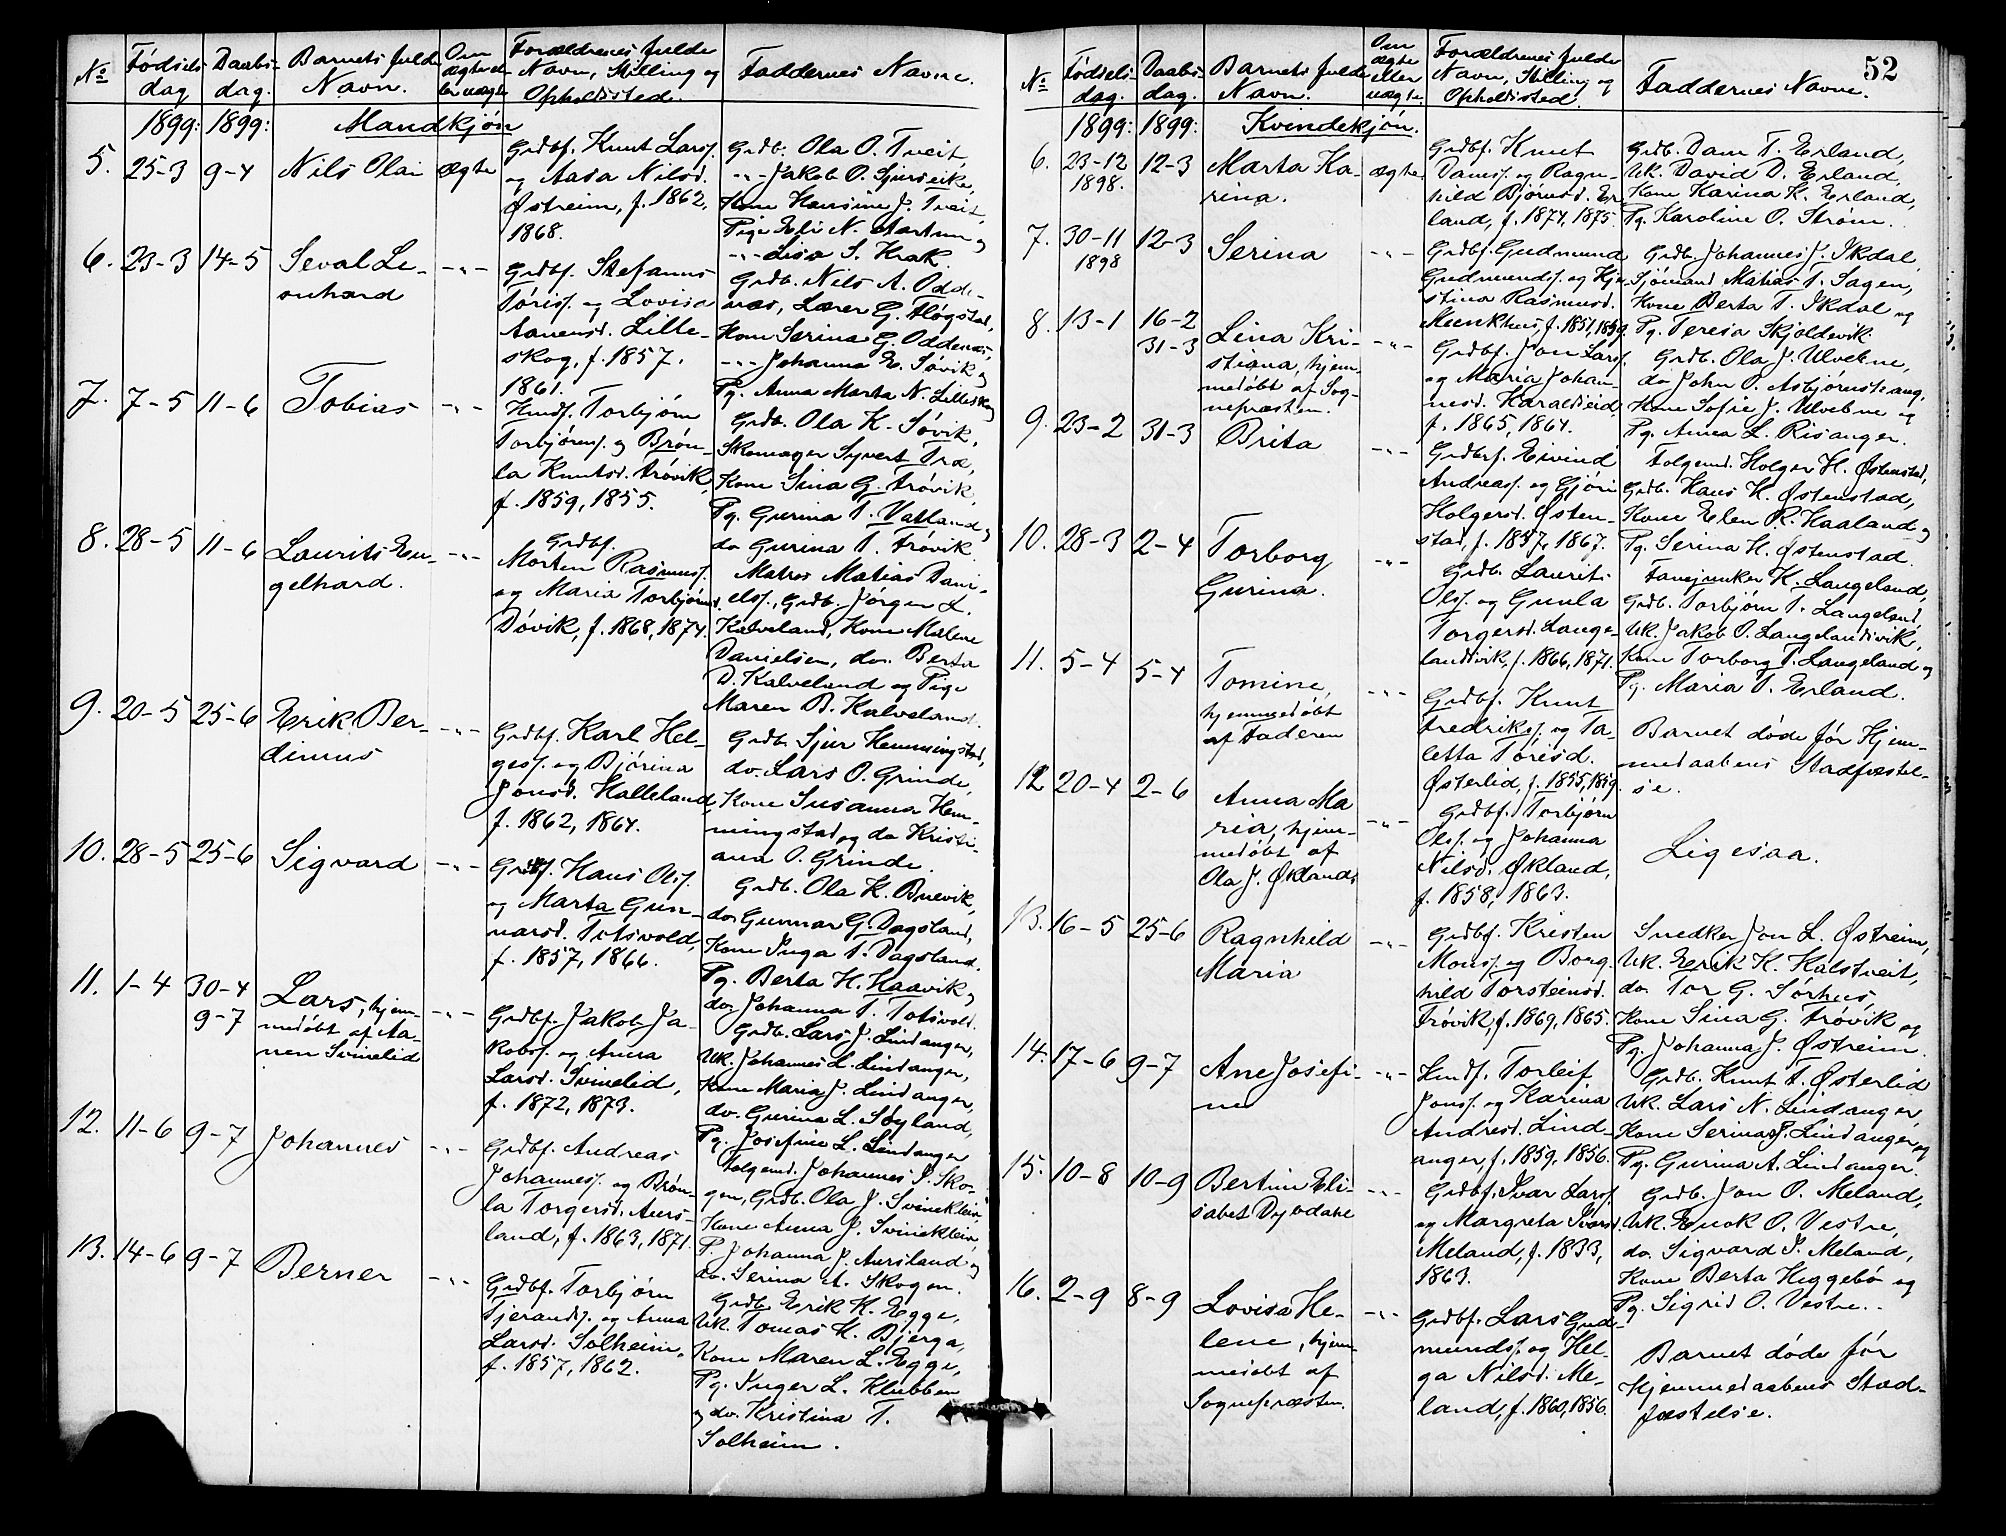 No
Fødsels-
dag
Daabs-
dag.
Barnets fulde
Navn.
Om
ægte el-
ler uægte
Forældrenes fulde
Navn, Stilling og
Opholdssted.
Faddernes Navne.
1899: 1899: Mandkjøn
5. 25-3 9-4 Nils Olai ægte
Grdbf. Knut Larss.
og Aasa Nilsd.
Østreim, f. 1862,
1868.
Grdb. Ola O. Tveit,
-"- Jakob O. Sjurseike,
Kone Hansine J. Tveit,
Pige Eli N. Aartun og
-"- Lisa S. Krak.
6. 23-3 14-5 Seval Le-
onhard -"-
Grdbf. Stefanus
Tøriss. og Lovisa
Aanensd. Lille-
skog, f. 1857.
1861.
Grdb. Nils A. Odde-
næs, Lærer G. Fløgstad,
Kone Serina G. Oddenæs,
-"- Johanna E. Søvik og
Pg. Anna Marta N. Lilleskog
7. 7-5 11-6 Tobias -"-
Hmdf. Torbjørn
Torbjørns. og Brøn-
la Knutsd. Frøvik,
f. 1859, 1855.
Grdb. Ola K. Søvik,
Skomager Syvert Træ,
Kone Sina G. Frøvik,
Pg. Gurina T. Vatland og
do Gurina T. Frøvik.
8. 28-5 11-6 Laurits En-
gelhard. -"-
Grdbf.
Morten Rasmuss.
og Maria Torbjørnsd.
Døvik, f. 1868, 1874
Matros Matias Dani-
els., Grdb. Jørgen L.
Kalveland, Kone Malene
Danielsen, do. Berta
D. Kalveland og Pige
Maren B. Kalveland.
9. 20-5 25-6 Erik Ber-
dinus -"-
Grdbf. Karl Hel-
gess. og Bjørina
Jonsd. Halleland,
f. 1862, 1864.
Grdb. Sjur Hemmingstad,
do. Lars O. Grinde,
Kone Susanna Hem-
mingstad og do Kristi-
ana O. Grinde.
10. 28-5 25-6 Sigvard -"-
Grdbf. Hans Olss.
og Marta Gun-
narsd. Totsvold,
f. 1857, 1866.
Grdb. Ola K. Buevik,
do. Gunnar G. Dagsland,
Kone Inga T. Dagsland.
Pg. Berta H. Haavik og
do. Johanna T. Totsvold.
11. 1-4 30-4
9-7 Lars, hjem-
medøbt af Aa-
nen Svinelid -"-
Grdbf. Jakob Ja-
kobs. og Anna
Larsd. Svinelid,
f. 1872, 1873.
Grdb. Lars J. Lindanger,
Uk. Johannes L. Lindanger,
Kone Maria J. Lindanger,
do. Gurina L. Søyland,
Pg. Josefine L. Lindanger
12. 11-6 9-7 Johannes -"-
Grdbf. Andreas
Johanness. og Brøn-
la Torgersd. Aurs-
land, f. 1863, 1871.
Folgemd. Johannes P. Sko-
gen, Grdb. Ola J. Svinekleiv,
Kone Anna J. Svinekleiv,
P. Johanna J. Aursland og
do. Serina A. Skogen.
13. 14-6 9-7 Berner -"-
Grdbf. Torbjørn
Tjerands. og Anna
Larsd. Solheim.
f. 1857, 1862.
Grdb. Erik K. Egge,
Uk. Tomas K. Bjerga,
Kone Maren L. Egge,
Pg. Inger L. Klubben
og do. Kristina T.
Solheim.
52
No
Fødsels-
dag.
Daabs-
dag.
Barnets fulde
Navn.
Om
ægte
eller
uægte
Forældrenes fulde
Navn, Stilling og
Opholdssted.
Faddernes Navne.
1899: 1899: Kvindekjøn.
6. 23-12
1898. 12-3 Marta Ka-
rina. ægte
Grdbf. Knut
Danss. og Ragn-
hild Bjørnsd. Er-
land, f. 1874, 1875.
Grdb. Dan T. Erland,
Uk. David D. Erland,
Kone Karina K. Erland,
Pg. Karoline O. Strøm.
7. 30-11
1898 12-3 Serina -"-
Grdbf. Gudmund
Gudmunds. og Kje-
stina Rasmusd.
Meenkhus, f. 1851, 1859.
Grdb. Johannes J. Ikdal,
Sjømand Matias T. Sagen,
Kone Berta T. Ikdal og
Pg. Teresa Skjoldevik
8. 13-1 16-2
31-3 Lina Kri-
stiana, hjem-
medøbt af Sog-
nepræsten. -"-
Grdbf. Jon Larss.
og Maria Johan-
nesd. Haraldseid
f. 1865, 1864.
Grdb. Ola J. Ulvebne,
do John O. Asbjørnsteang,
Kone Sofie J. Ulvebne og
Pg. Anna L. Risanger.
9. 23-2 31-3 Brita -"-
Grdbrf. Eivind
Andreass. og Gjøri
Holgersd. Østen-
stad, f. 1857, 1867.
Folgemd. Holger H. Østenstad,
Grdb. Hans H. Østenstad,
Kone Elen R. Haaland og
Pg. Serina H. Østenstad.
10. 28-3 2-4 Torborg
Gurina. -"-
Grdb. Laurits
Olss. og Gunla
Torgersd. Lange-
landsvik, f. 1866, 1871.
Fanejunker K. Langeland,
Grdb. Torbjørn T. Langeland,
Uk. Jakob O. Langelandsvik,
Kone Torborg T. Langeland og
Pg. Maria T. Erland.
11. 5-4 5-4 Tomine,
hjemmedøbt
af Faderen -"-
Grdbf. Knut
Fredriks. og Ta-
letta Tørisd.
Østerlid, f. 1855, 1859.
Barnet døde før Hjem-
medaabens Stadfæstel-
se.
12 20-4 2-6 Anna Ma
ria, hjem-
medøbt af
Ola J. Øklands -"-
Grdbf. Torbjørn
Olss. og Johanna
Nilsd. Økland,
f. 1858, 1863.
Ligesaa.
13. 16-5 25-6 Ragnhild
Maria -"-
Grdbf. Kristen
Monss. og Borg-
hild Torsteinsd.
Frøvik, f. 1869, 1865.
Snedker Jon L. Østreim,
Uk. Eerik K. Kalstveit,
do. Tor G. Sørhus,
Kone Sina G. Frøvik og
Pg. Johanna J. Østreim.
14. 17-6 9-7 Ane Josefi-
ne -"-
Hmdf. Torleif
Jonss. og Karina
Andresd. Lind-
anger, f. 1859, 1856.
Grdb. Knut A. Østerlid
Uk. Lars N. Lindanger,
Kone Serina J. Lindanger og
Pg. Gurina A. Lindanger.
15. 10-8 10-9 Bertine Eli-
sabet Dybdahl -"-
Grdbf. Ivar Larss.
og Margreta Ivarsd.
Meland, f. 1833,
1863.
Grdb. Jon O. Meland,
Uk. Enok O. Vestre,
do. Sigvard I. Meland,
Kone Berta Heggebø og
Pg. Sigrid O. Vestre.
16. 2-9 8-9 Lovisa He-
lene, hjem-
medøbt af
Sognepræsten. -"-
Grdbf. Lars Gud-
munds. og Hel-
ga Nilsd. Me-
land, f. 1860, 1856.
Barnet døde før
Hjemmedaabens Stad-
fæstelse.